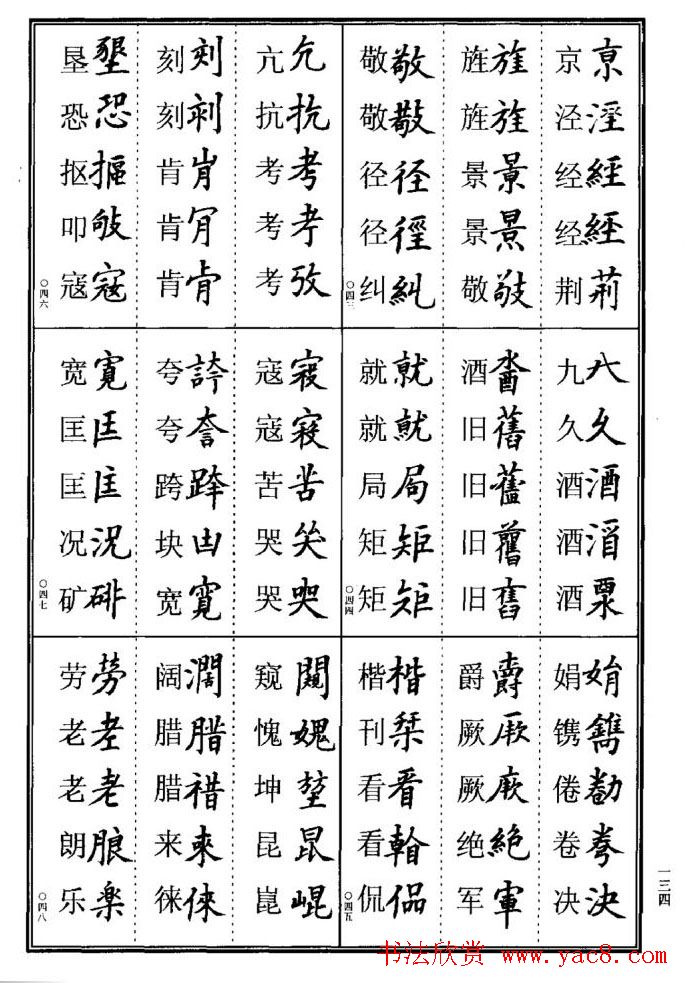 京亰
泾涇
经經
经經
荆荊
旌旌
旌旌
景景
景景
敬敬
敬敬
敬敬
径径
径徑
纠糺
〇四三
九
久久
酒酒
酒
酒
酒
旧舊
旧
旧舊
旧舊
就就
就就
局局
矩矩
矩矩
〇四四
娟娟
镌鐫
倦勌
卷
决決
爵爵
厥厥
厥厥
绝絕
军軍
楷楷
刊栞
看看
看
侃侃
〇四五
亢亢
抗抗
考考
考考
考攷
刻刻
刻刻
肯肯
肯肎
肯肯
垦墾
恐恐
抠摳
叩敂
寇寇
〇四六
寇寇
寇寇
苦苦
哭
哭哭
夸誇
夸
跨跨
块凷
宽寬
宽寬
匡匡
匡匡
况況
矿
〇四七
窥闚
愧媿
坤堃
昆昆
崑崐
阔濶
腊腊
腊
来来
徕倈
劳勞
老老
老老
朗朖
乐楽
〇四八
一三四
书法欣赏 www.yac8.com